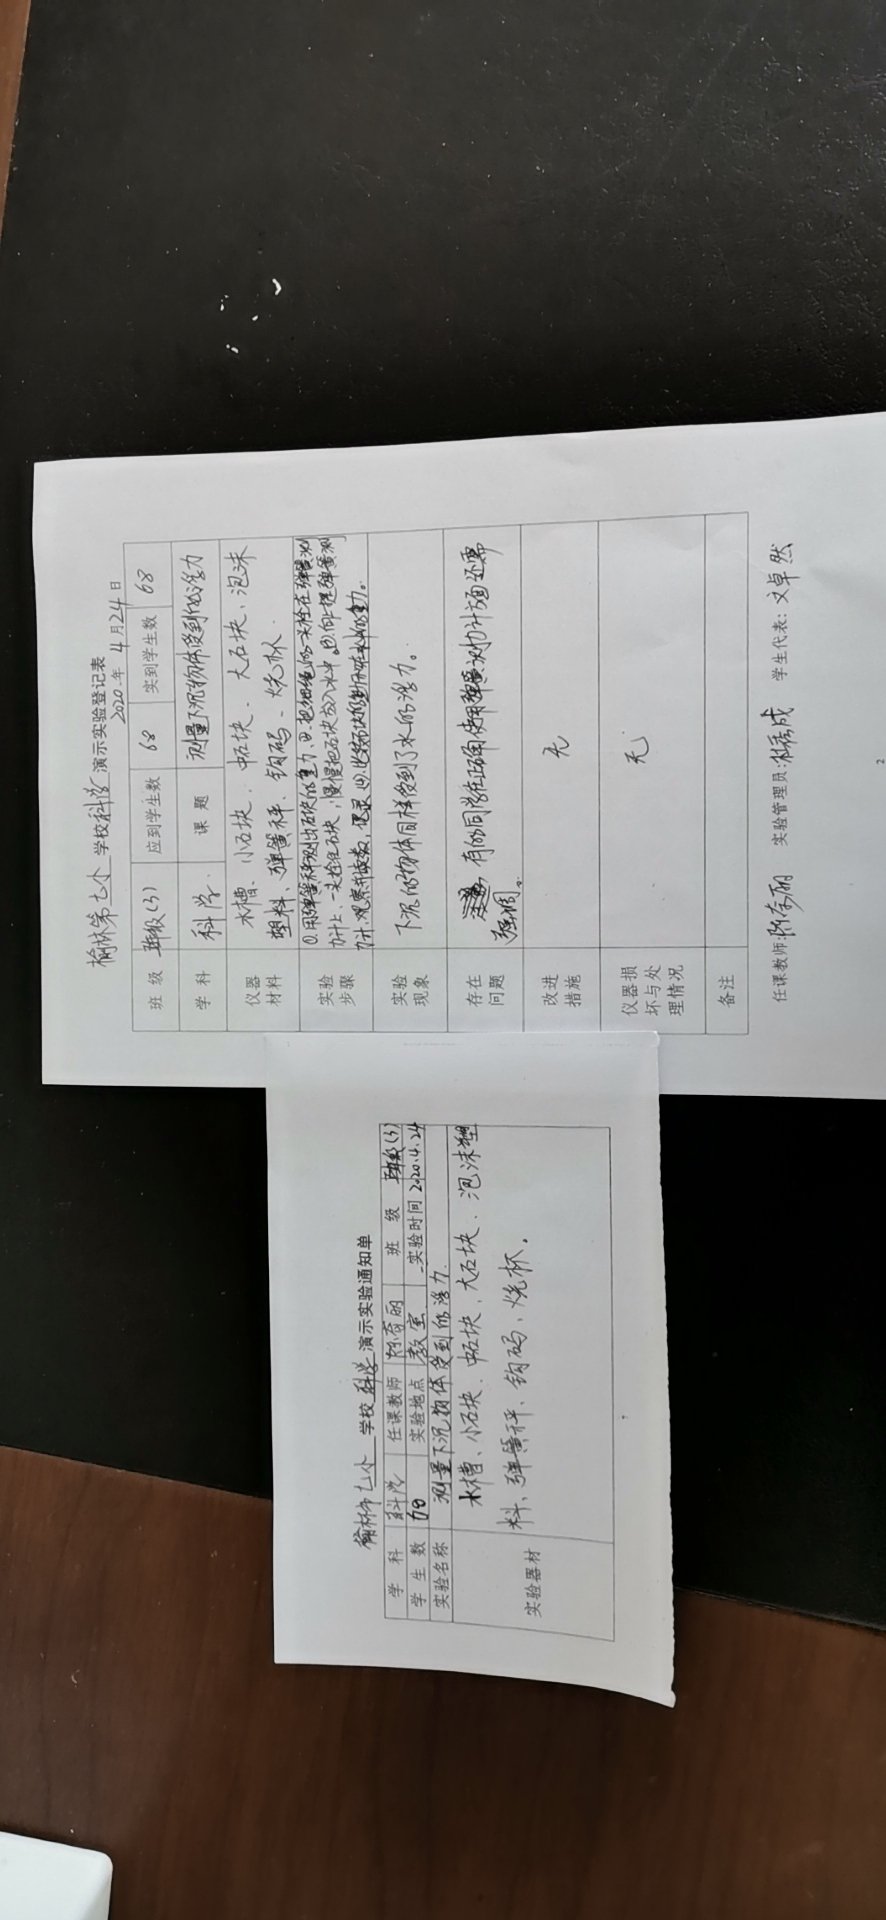 榆林第七小学校科学演示实验登记表
2020年4月24日
班级 五年级(3) 应到学生数 68 实到学生数 68
学科 科学 课题 测量下沉物体受到的浮力
仪器材料 水槽、小石块、中石块、大石块、泡沫
塑料、弹簧秤、钩码、烧杯.
实验步骤 ①.用弹簧秤测出石块的重力、②.把细绳的一头栓在弹簧测
力计上、一头栓住石块,慢慢把石块放入水中。③.向上提弹簧测
力计.观察并读数,记录
实验现象 下沉的物体同样受到了水的浮力。
存在问题 有的同学在正确使用弹簧测力计方面还需
强调。
改进措施 无
仪器损坏与处理情况 无
备注
任课教师: 实验管理员: 学生代表:文卓然
2
榆林市七小学校科学演示实验通知单
学科 科学 任课教师 班级 (3)
学生数 68 实验地点 教室 实验时间 2020.4.24
实验名称 测量下沉物体受到的浮力.
实验器材 水槽、小石块、中石块、大石块、泡沫塑
料、弹簧秤、钩码、烧杯.